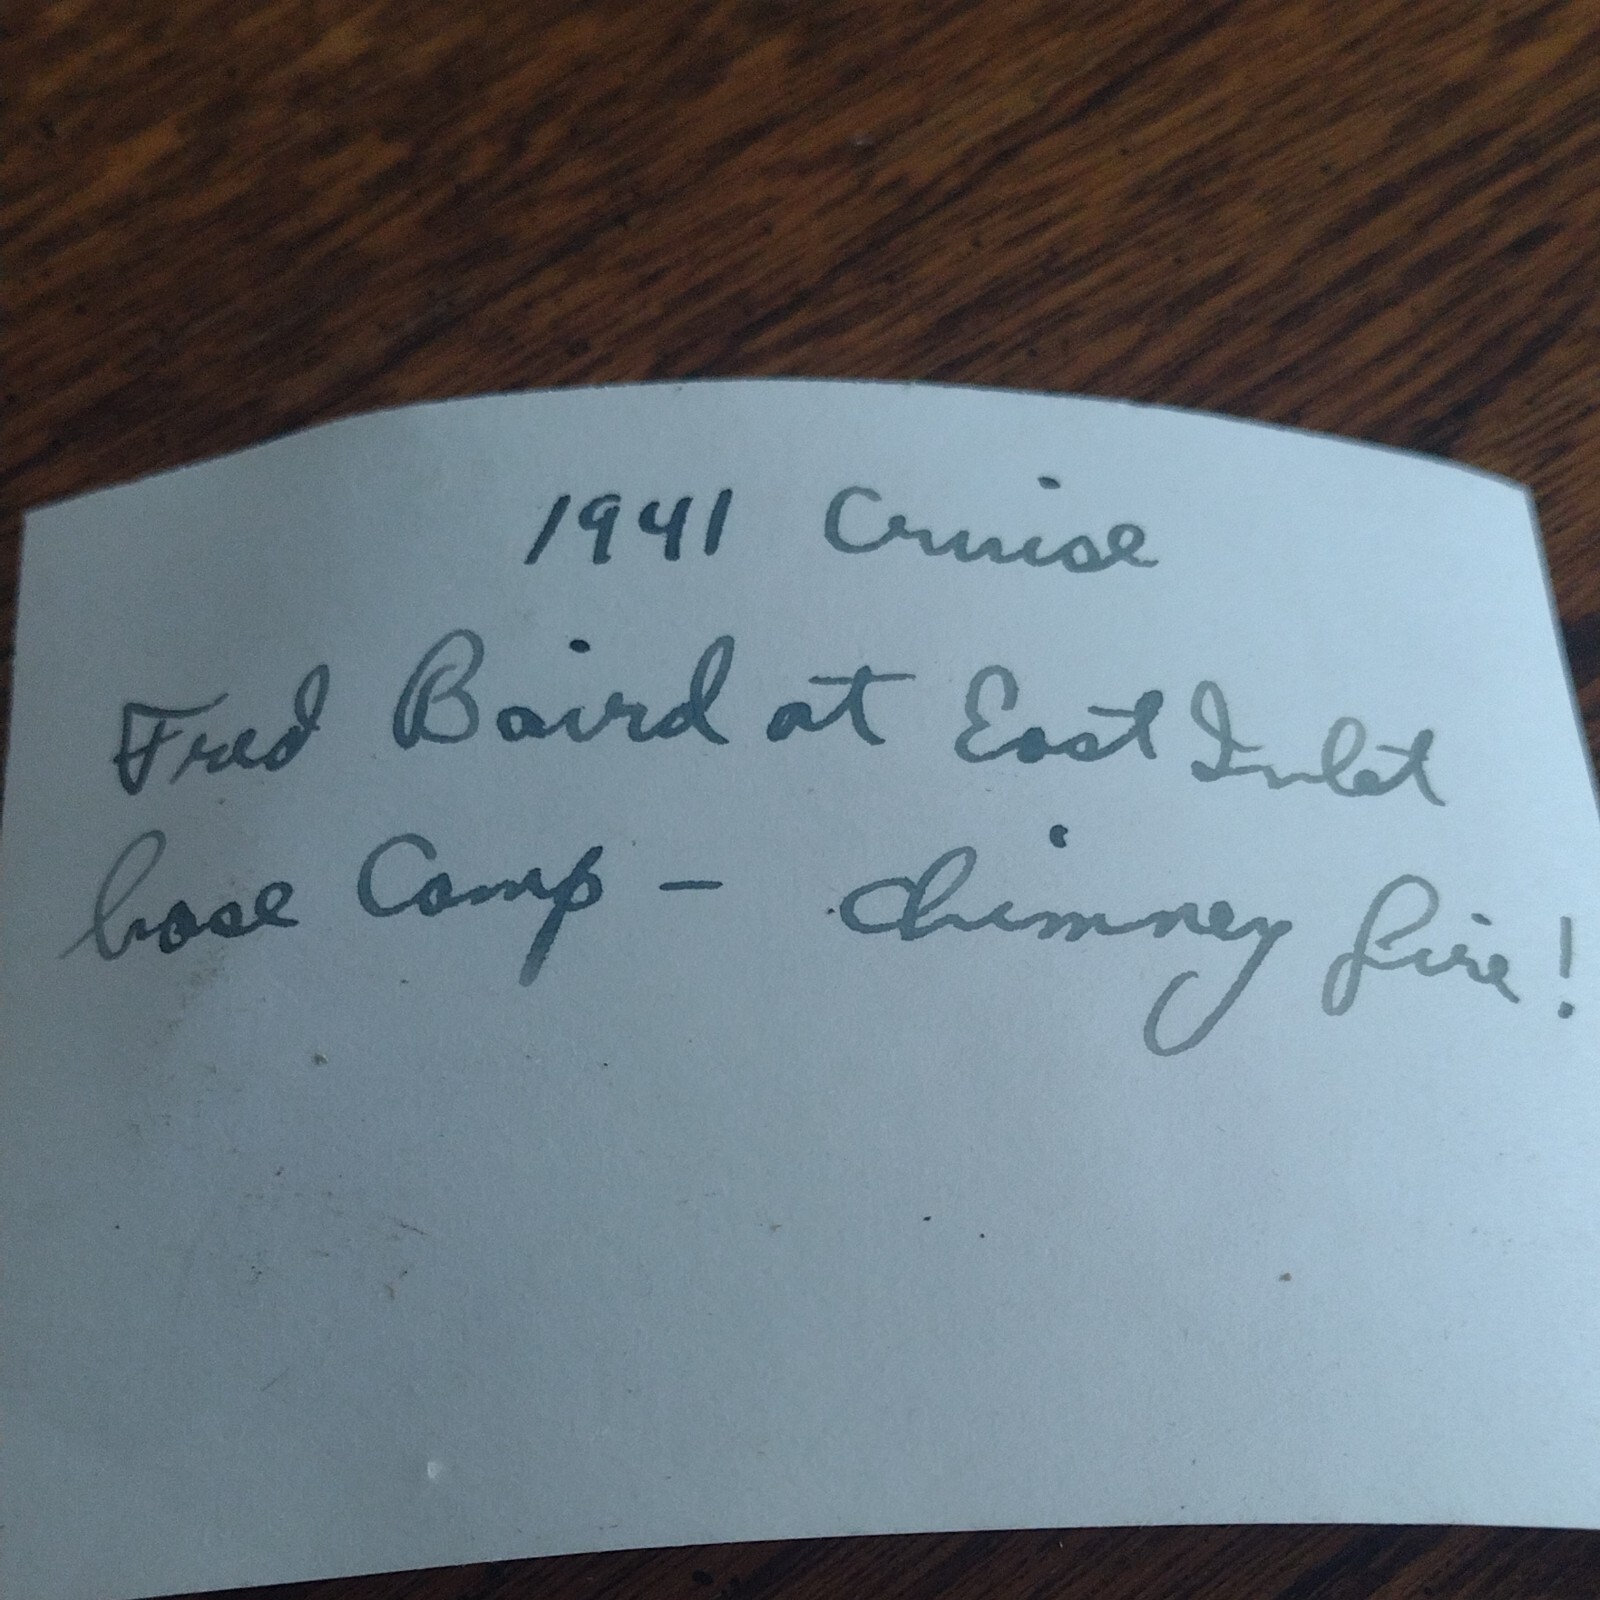 1941 Cruise
Fred Baird at East Inlet
base Camp - chimney fire!